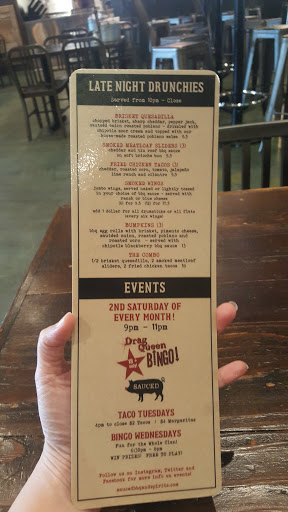 LATE NIGHT DRUNCHIES
Served from 10pm - Close
BRISKET QUESADILLA
chopped brisket, sharp cheddar, pepper jack,
roasted poblano - drizzled with
chipotle sour cream and topped with our
house-made roasted poblano salsa
SMOKED MEATLOAF SLIDERS (3)
cheddar and bbq sauce
FRIED CHICKEN TACOS (3)
cheddar, roasted corn, tomato, jalapeño
lime ranch and cilantro
SMOKED WINGS
jumbo wings, served naked or lightly tossed
in your choice of bbq sauce - served with
ranch or blue cheese
add 1 dollar for all drumsticks or all flats
BUMPKINS (3)
bbq egg rolls with brisket, pimento cheese,
roasted poblano and
roasted corn - served with
chipotle blackberry bbq sauce
THE COMBO
1/2 brisket quesadilla, 2 smoked meatloaf
sliders, 2 fried chicken tacos
EVENTS
2ND SATURDAY OF
EVERY MONTH!
9pm - 11pm
Drag
Queen
BINGO!
SAUCED
TACO TUESDAYS
4pm to close $2 Tacos | $4 Margaritas
BINGO WEDNESDAYS
Fun for the Whole Clan!
WIN PRIZES! FREE TO PLAY!
Follow us on Instagram, Twitter and
Facebook for more info on events!